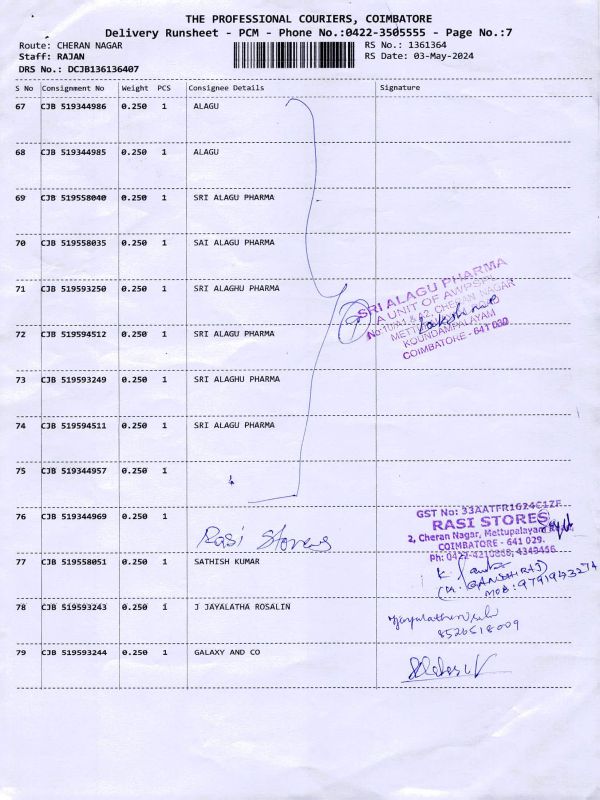 THE PROFESSIONAL COURIERS, COIMBATORE
Delivery Runsheet - PCM - Phone No.:0422-3505555 - Page No.:7
Route: CHERAN NAGAR RS No.: 1361364
Staff: RAJAN RS Date: 03-May-2024
DRS No.: DCJB136136407
S No Consignment No Weight PCS Consignee Details Signature
67 CJB 519344986 0.250 1 ALAGU
68 CJB 519344985 0.250 1 ALAGU
69 CJB 519558040 0.250 1 SRI ALAGU PHARMA
70 CJB 519558035 0.250 1 SAI ALAGU PHARMA
71 CJB 519593250 0.250 1 SRI ALAGHU PHARMA
SRI ALAGU PHARMA
A UNIT OF AWPSPL
CHERAN NAGAR
KOUNDAMPALAYAM
COIMBATORE - 641 030
72 CJB 519594512 0.250 1 SRI ALAGU PHARMA
73 CJB 519593249 0.250 1 SRI ALAGHU PHARMA
74 CJB 519594511 0.250 1 SRI ALAGU PHARMA
75 CJB 519344957 0.250 1
76 CJB 519344969 0.250 1
Rasi Stores
GST No: 33AATFR1624C1ZF
RASI STORES
2, Cheran Nagar, Mettupalayam
COIMBATORE - 641 029.
Ph: 0422-4210888, 4349456
77 CJB 519558051 0.250 1 SATHISH KUMAR
MOB: 9791943274
78 CJB 519593243 0.250 1 J JAYALATHA ROSALIN
8526518009
79 CJB 519593244 0.250 1 GALAXY AND CO